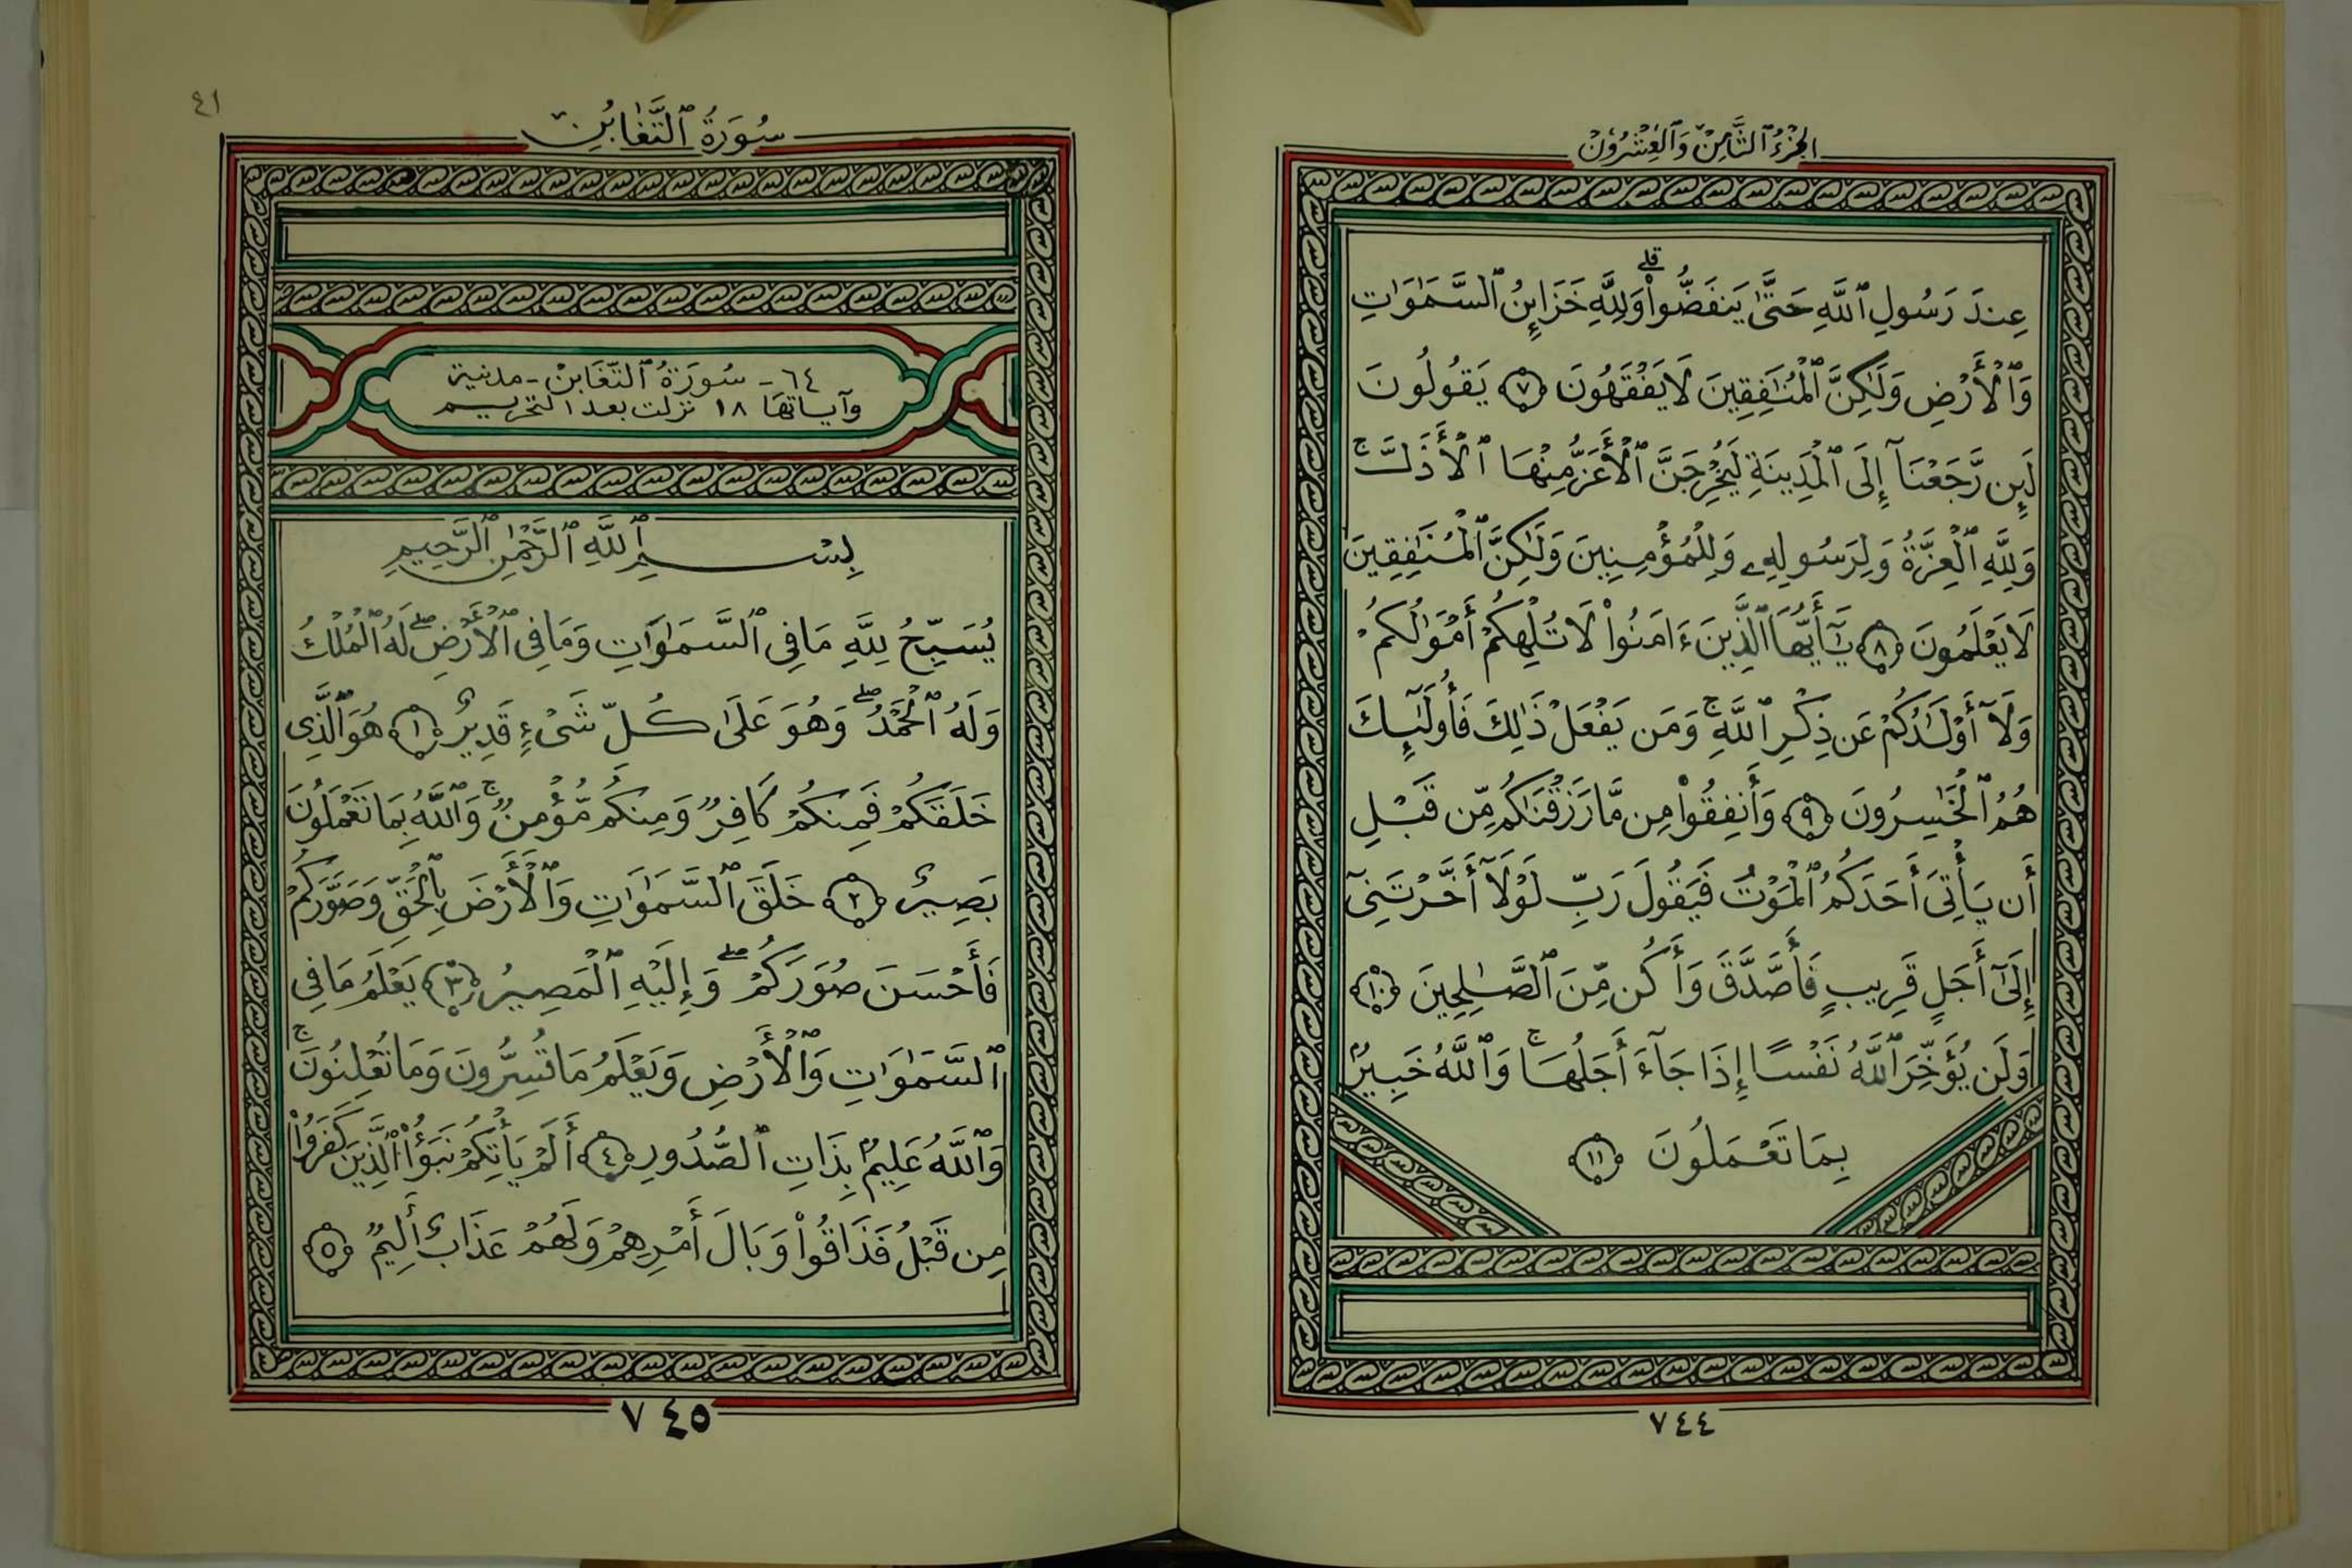 الجزء الثامن والعشرون
عِندَ رَسُولِ ٱللَّهِ حَتَّىٰ يَنفَضُّوا۟ ۗ وَلِلَّهِ خَزَآئِنُ ٱلسَّمَٰوَٰتِ
وَٱلْأَرْضِ وَلَٰكِنَّ ٱلْمُنَٰفِقِينَ لَا يَفْقَهُونَ ٧ يَقُولُونَ
لَئِن رَّجَعْنَآ إِلَى ٱلْمَدِينَةِ لَيُخْرِجَنَّ ٱلْأَعَزُّ مِنْهَا ٱلْأَذَلَّ ۚ
وَلِلَّهِ ٱلْعِزَّةُ وَلِرَسُولِهِۦ وَلِلْمُؤْمِنِينَ وَلَٰكِنَّ ٱلْمُنَٰفِقِينَ
لَا يَعْلَمُونَ ٨ يَٰٓأَيُّهَا ٱلَّذِينَ ءَامَنُوا۟ لَا تُلْهِكُمْ أَمْوَٰلُكُمْ
وَلَآ أَوْلَٰدُكُمْ عَن ذِكْرِ ٱللَّهِ ۚ وَمَن يَفْعَلْ ذَٰلِكَ فَأُو۟لَٰٓئِكَ
هُمُ ٱلْخَٰسِرُونَ ٩ وَأَنفِقُوا۟ مِن مَّا رَزَقْنَٰكُم مِّن قَبْلِ
أَن يَأْتِىَ أَحَدَكُمُ ٱلْمَوْتُ فَيَقُولَ رَبِّ لَوْلَآ أَخَّرْتَنِىٓ
إِلَىٰٓ أَجَلٍ قَرِيبٍ فَأَصَّدَّقَ وَأَكُن مِّنَ ٱلصَّٰلِحِينَ ١٠
وَلَن يُؤَخِّرَ ٱللَّهُ نَفْسًا إِذَا جَآءَ أَجَلُهَا ۚ وَٱللَّهُ خَبِيرٌۢ
بِمَا تَعْمَلُونَ ١١
٧٤٤
٤١
سُورَةُ ٱلتَّغَابُنِ
٦٤ - سُورَةُ ٱلتَّغَابُنْ - مدنية
وآياتها ١٨ نزلت بعد التحريم
بِسْمِ ٱللَّهِ ٱلرَّحْمَٰنِ ٱلرَّحِيمِ
يُسَبِّحُ لِلَّهِ مَا فِى ٱلسَّمَٰوَٰتِ وَمَا فِى ٱلْأَرْضِ ۖ لَهُ ٱلْمُلْكُ
وَلَهُ ٱلْحَمْدُ ۖ وَهُوَ عَلَىٰ كُلِّ شَىْءٍ قَدِيرٌ ١ هُوَ ٱلَّذِى
خَلَقَكُمْ فَمِنكُمْ كَافِرٌ وَمِنكُم مُّؤْمِنٌ ۚ وَٱللَّهُ بِمَا تَعْمَلُونَ
بَصِيرٌ ٢ خَلَقَ ٱلسَّمَٰوَٰتِ وَٱلْأَرْضَ بِٱلْحَقِّ وَصَوَّرَكُمْ
فَأَحْسَنَ صُوَرَكُمْ ۖ وَإِلَيْهِ ٱلْمَصِيرُ ٣ يَعْلَمُ مَا فِى
ٱلسَّمَٰوَٰتِ وَٱلْأَرْضِ وَيَعْلَمُ مَا تُسِرُّونَ وَمَا تُعْلِنُونَ ۚ
وَٱللَّهُ عَلِيمٌۢ بِذَاتِ ٱلصُّدُورِ ٤ أَلَمْ يَأْتِكُمْ نَبَؤُا۟ ٱلَّذِينَ كَفَرُوا۟
مِن قَبْلُ فَذَاقُوا۟ وَبَالَ أَمْرِهِمْ وَلَهُمْ عَذَابٌ أَلِيمٌ ٥
٧٤٥